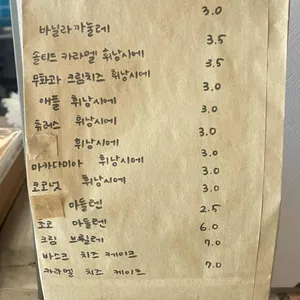 바닐라 까눌레 3.0
솔티드 카라멜 휘낭시에 3.5
무화과 크림치즈 휘낭시에 3.5
애플 휘낭시에 3.0
츄러스 휘낭시에 3.0
휘낭시에 3.0
마카다미아 휘낭시에 3.0
코코넛 휘낭시에 3.0
마들렌 2.5
초코 마들렌
크림 브륄레 6.0
바스크 치즈 케이크 7.0
카라멜 치즈 케이크 7.0